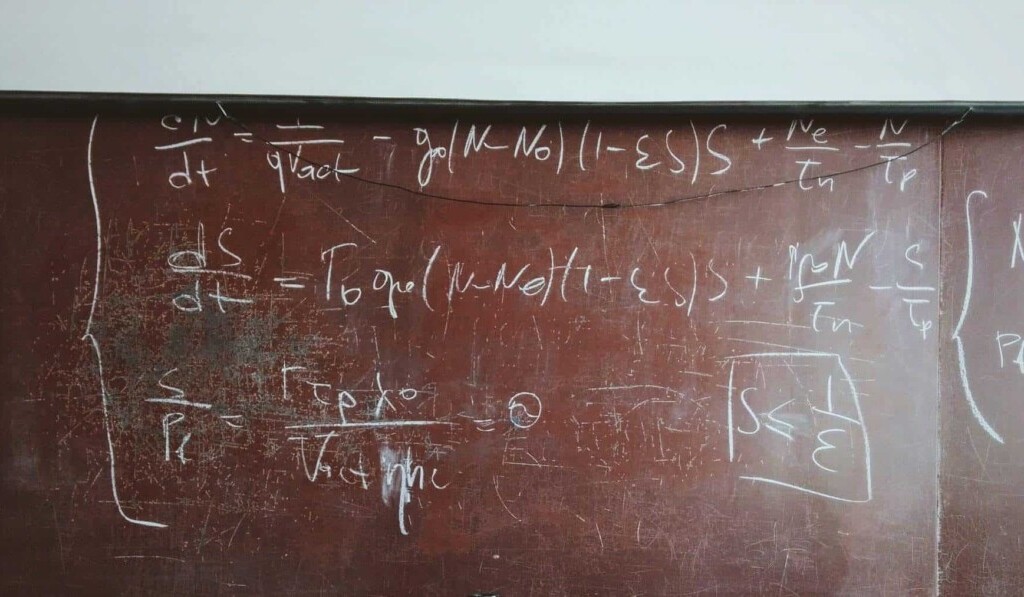 dN/dt = I/(qVact) - g₀(N-N₀)(1-εS)S + Ne/τn - N/τp
dS/dt = Γ₀g₀(N-N₀)(1-εS)S + N/τn - S/τp
S/Pf = Γτpλ₀/(Vactηhc) =
S ≤ 1/ε